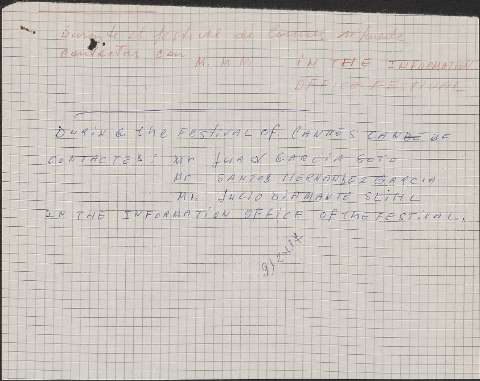 Durante el festival de Cannes se puede
contactar con M. M M. IN THE INFORMATION
OFFICE FESTIVAL
DURING the FESTIVAL of CANNES CAN BE
CONTACTED: Mr JUAN GARCIA SOTO
Mr SANTOS HERNANDEZ GARCIA
Mr. JULIO DIAMANTE
IN THE INFORMATION OFFICE OF the FESTIVAL.